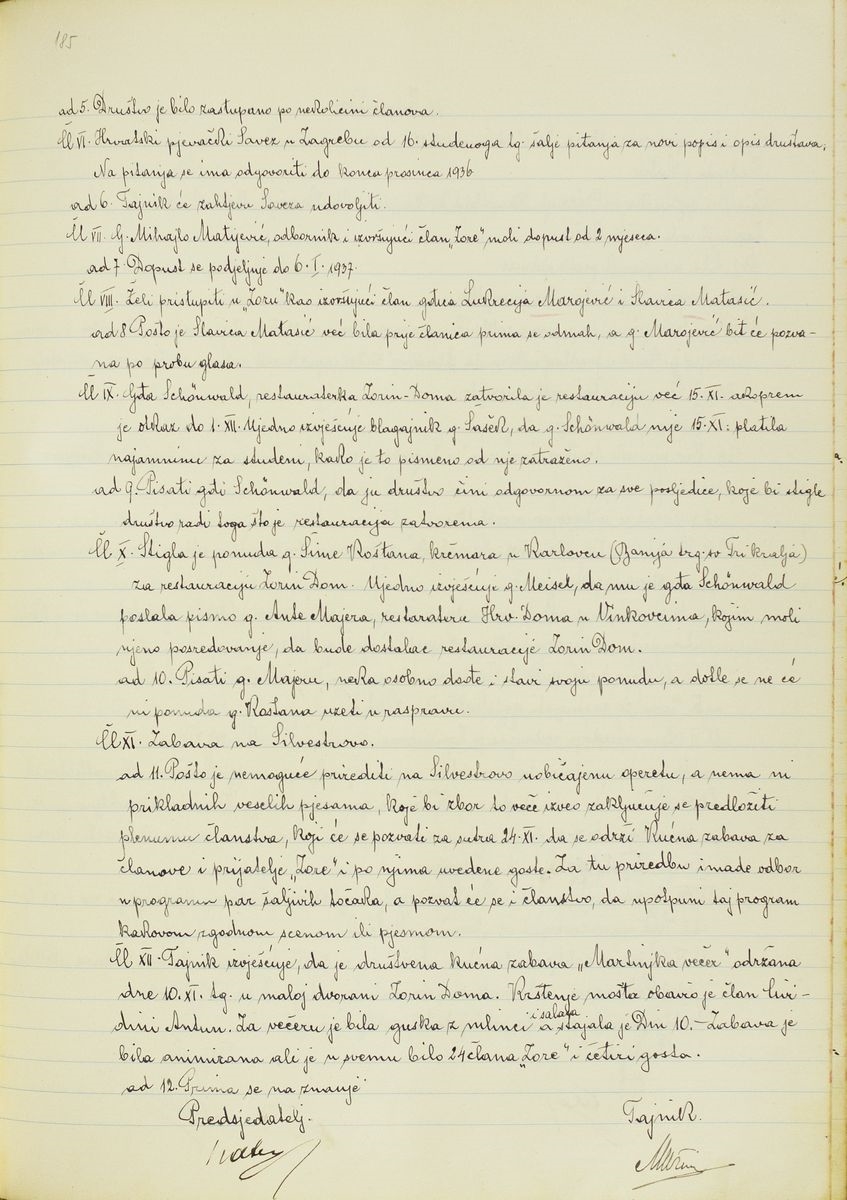 185
ad 5. Društvo je bilo zastupano po nekolicini članova.
Čl VI. Hrvatski pjevački Savez u Zagrebu od 16. studenoga tg. šalje pitanja za novi popis i opis društava,
Na pitanja se ima odgovoriti do konca prosinca 1936
ad 6. Tajnik će zahtjevu Saveza udovoljiti.
Čl VII. G. Mihajlo Matijević, odbornik i izvršujući član „Zore" moli dopust od 2 mjeseca.
ad 7. Dopust se podjeljuje do 6. I. 1937.
Čl VIII. Želi pristupiti u „Zoru" kao izvršujući član gđica Lukrecija Marojević i Slavica Matasić.
ad 8 Pošto je Slavica Matasić već bila prije članica prima se odmah, a g. Marojević bit će pozva-
na po probu glasa.
Čl IX. Gđa Schönwald, restauraterka Zorin-Doma zatvorila je restauraciju već 15. XI. akoprem
je otkaz do 1. XII. Ujedno izvješćuje blagajnik g. Šašek, da g. Schönwald nije 15. XI. platila
najamninu za studeni, kako je to pismeno od nje zatraženo.
ad 9. Pisati gđi Schönwald, da ju društvo čini odgovornom za sve posljedice, koje bi stigle
društvo radi toga što je restauracija zatvorena.
Čl X. Stigla je ponuda g. Šime Koštana, krčmara u Karlovcu (Banija trg. sv Tri kralja)
za restauraciju Zorin Dom. Ujedno izvješćuje g. Meisel, da mu je gđa Schönwald
poslala pismo g. Ante Majera, restaratera Hrv. Doma u Vinkovcima, kojim moli
njeno posredovanje, da bude dostalac restauracije Zorin Dom.
ad 10. Pisati g. Majeru, neka osobno dođe i stavi svoju ponudu, a dotle se ne će
ni ponuda g. Kostana uzeti u raspravu.
Čl XI. Zabava na Silvestrovo.
ad 11. Pošto je nemoguće prirediti na Silvestrovo uobičajenu operetu, a nema ni
prikladnih veselih pjesama, koje bi zbor to veče izveo zaključuje se predložiti
plenumu članstva, koji će se pozvati za sutra 24. XI. da se održi Kućna zabava za
članove i prijatelje „Zore" i po njima uvedene goste. Za tu priredbu imade odbor
u programu par šaljivih točaka, a pozvat će se i članstvo, da upotpuni taj program
kakovom zgodnom scenom ili pjesmom.
Čl XII. Tajnik izvješćuje, da je društvena kućna zabava „Martinjska večer" održana
dne 10. XI. tg. u maloj dvorani Zorin Doma. Krštenje mošta obavio je član
Antun. Za večeru je bila guska z mlinci i salata a stajala je Din 10.- Zabava je
bila animirana ali je u svemu bilo 24 člana „Zore" i četiri gosta.
ad 12. Prima se na znanje
Predsjedatelj. Tajnik.